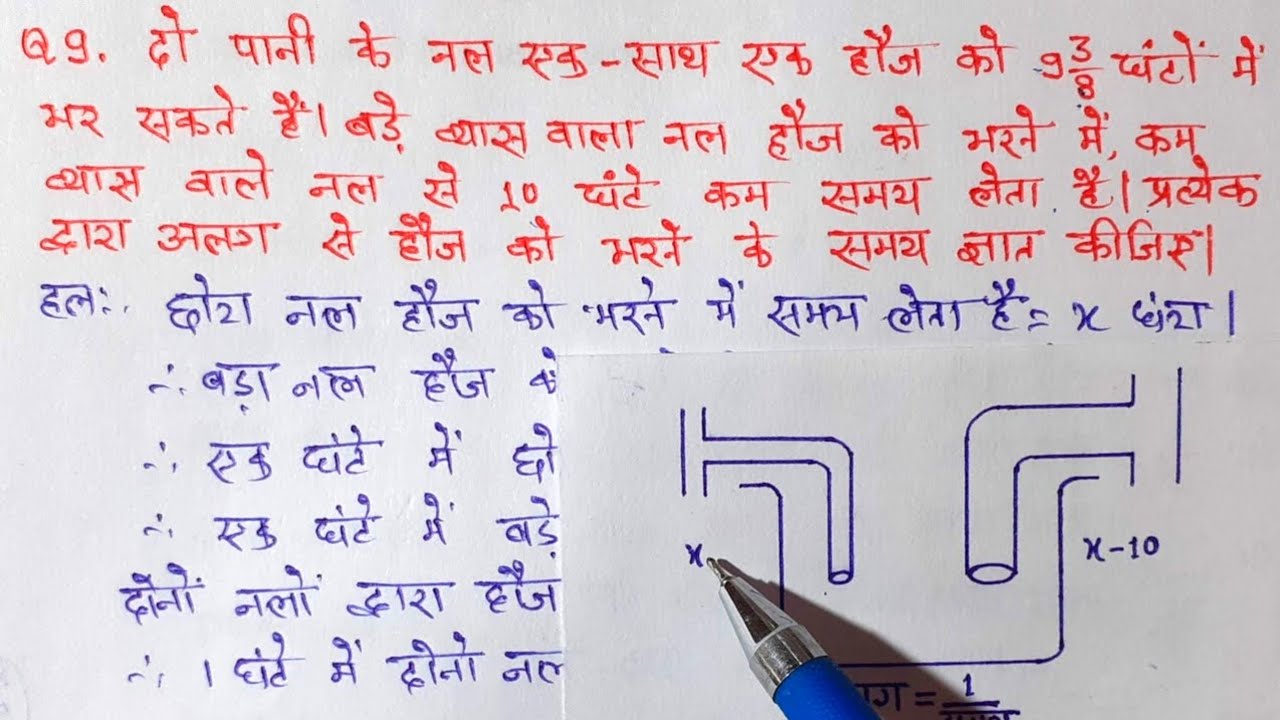 Q 9. दो पानी के नल एक-साथ एक हौज को 9 3/8 घंटों में
भर सकते हैं। बड़े व्यास वाला नल हौज को भरने में, कम
व्यास वाले नल से 10 घंटे कम समय लेता है। प्रत्येक
द्वारा अलग से हौज को भरने के समय ज्ञात कीजिए।
हल:. छोटा नल हौज को भरने में समय लेता है = x घंटा।
∴ बड़ा नल हौज
∴ एक घंटे में छो
∴ एक घंटे में बड़े
दोनों नलों द्वारा हौज
∴ 1 घंटे में दोनो नल
x
x-10
= 1